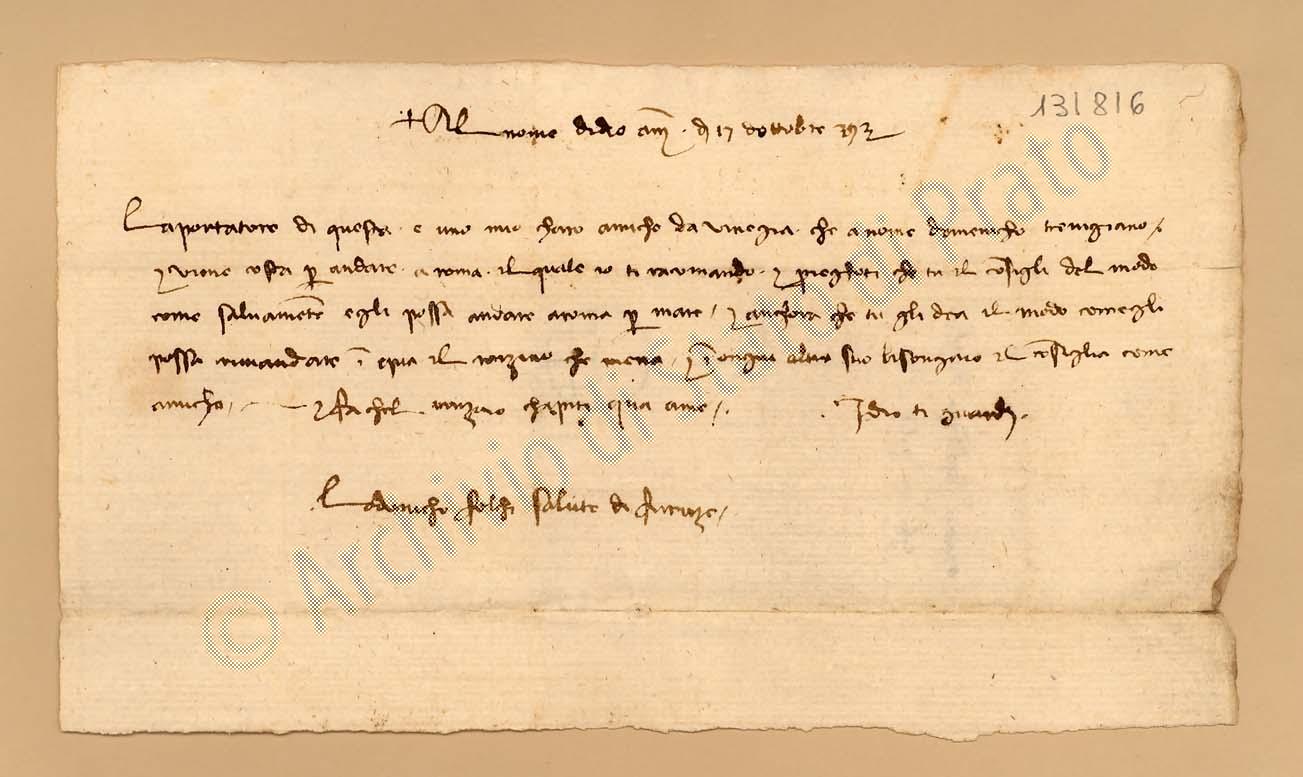 131816
+ Al nome di dio am̄. dì 17 d'ottobre 392
Laportatore di questa. e uno mio charo amicho da vinegia. che a nome domenicho trevigiano /.
& viene costà p andare. a roma. il quale io ti racomando. & prieghoti che tu il c̄sigli del modo
come salvamēte egli possa andare aroma p mare / & anchora che tu gli dea il modo comegli
possa rimandare ī qua il ronzino che mena / & ī ongni altro suo bisongnio il c̄siglia come
amicho / & fa chel ronzino chapiti qua ame /. Idio ti guardi.
Lodovicho folchi salute di firenze /
© Archivio di Stato di Prato